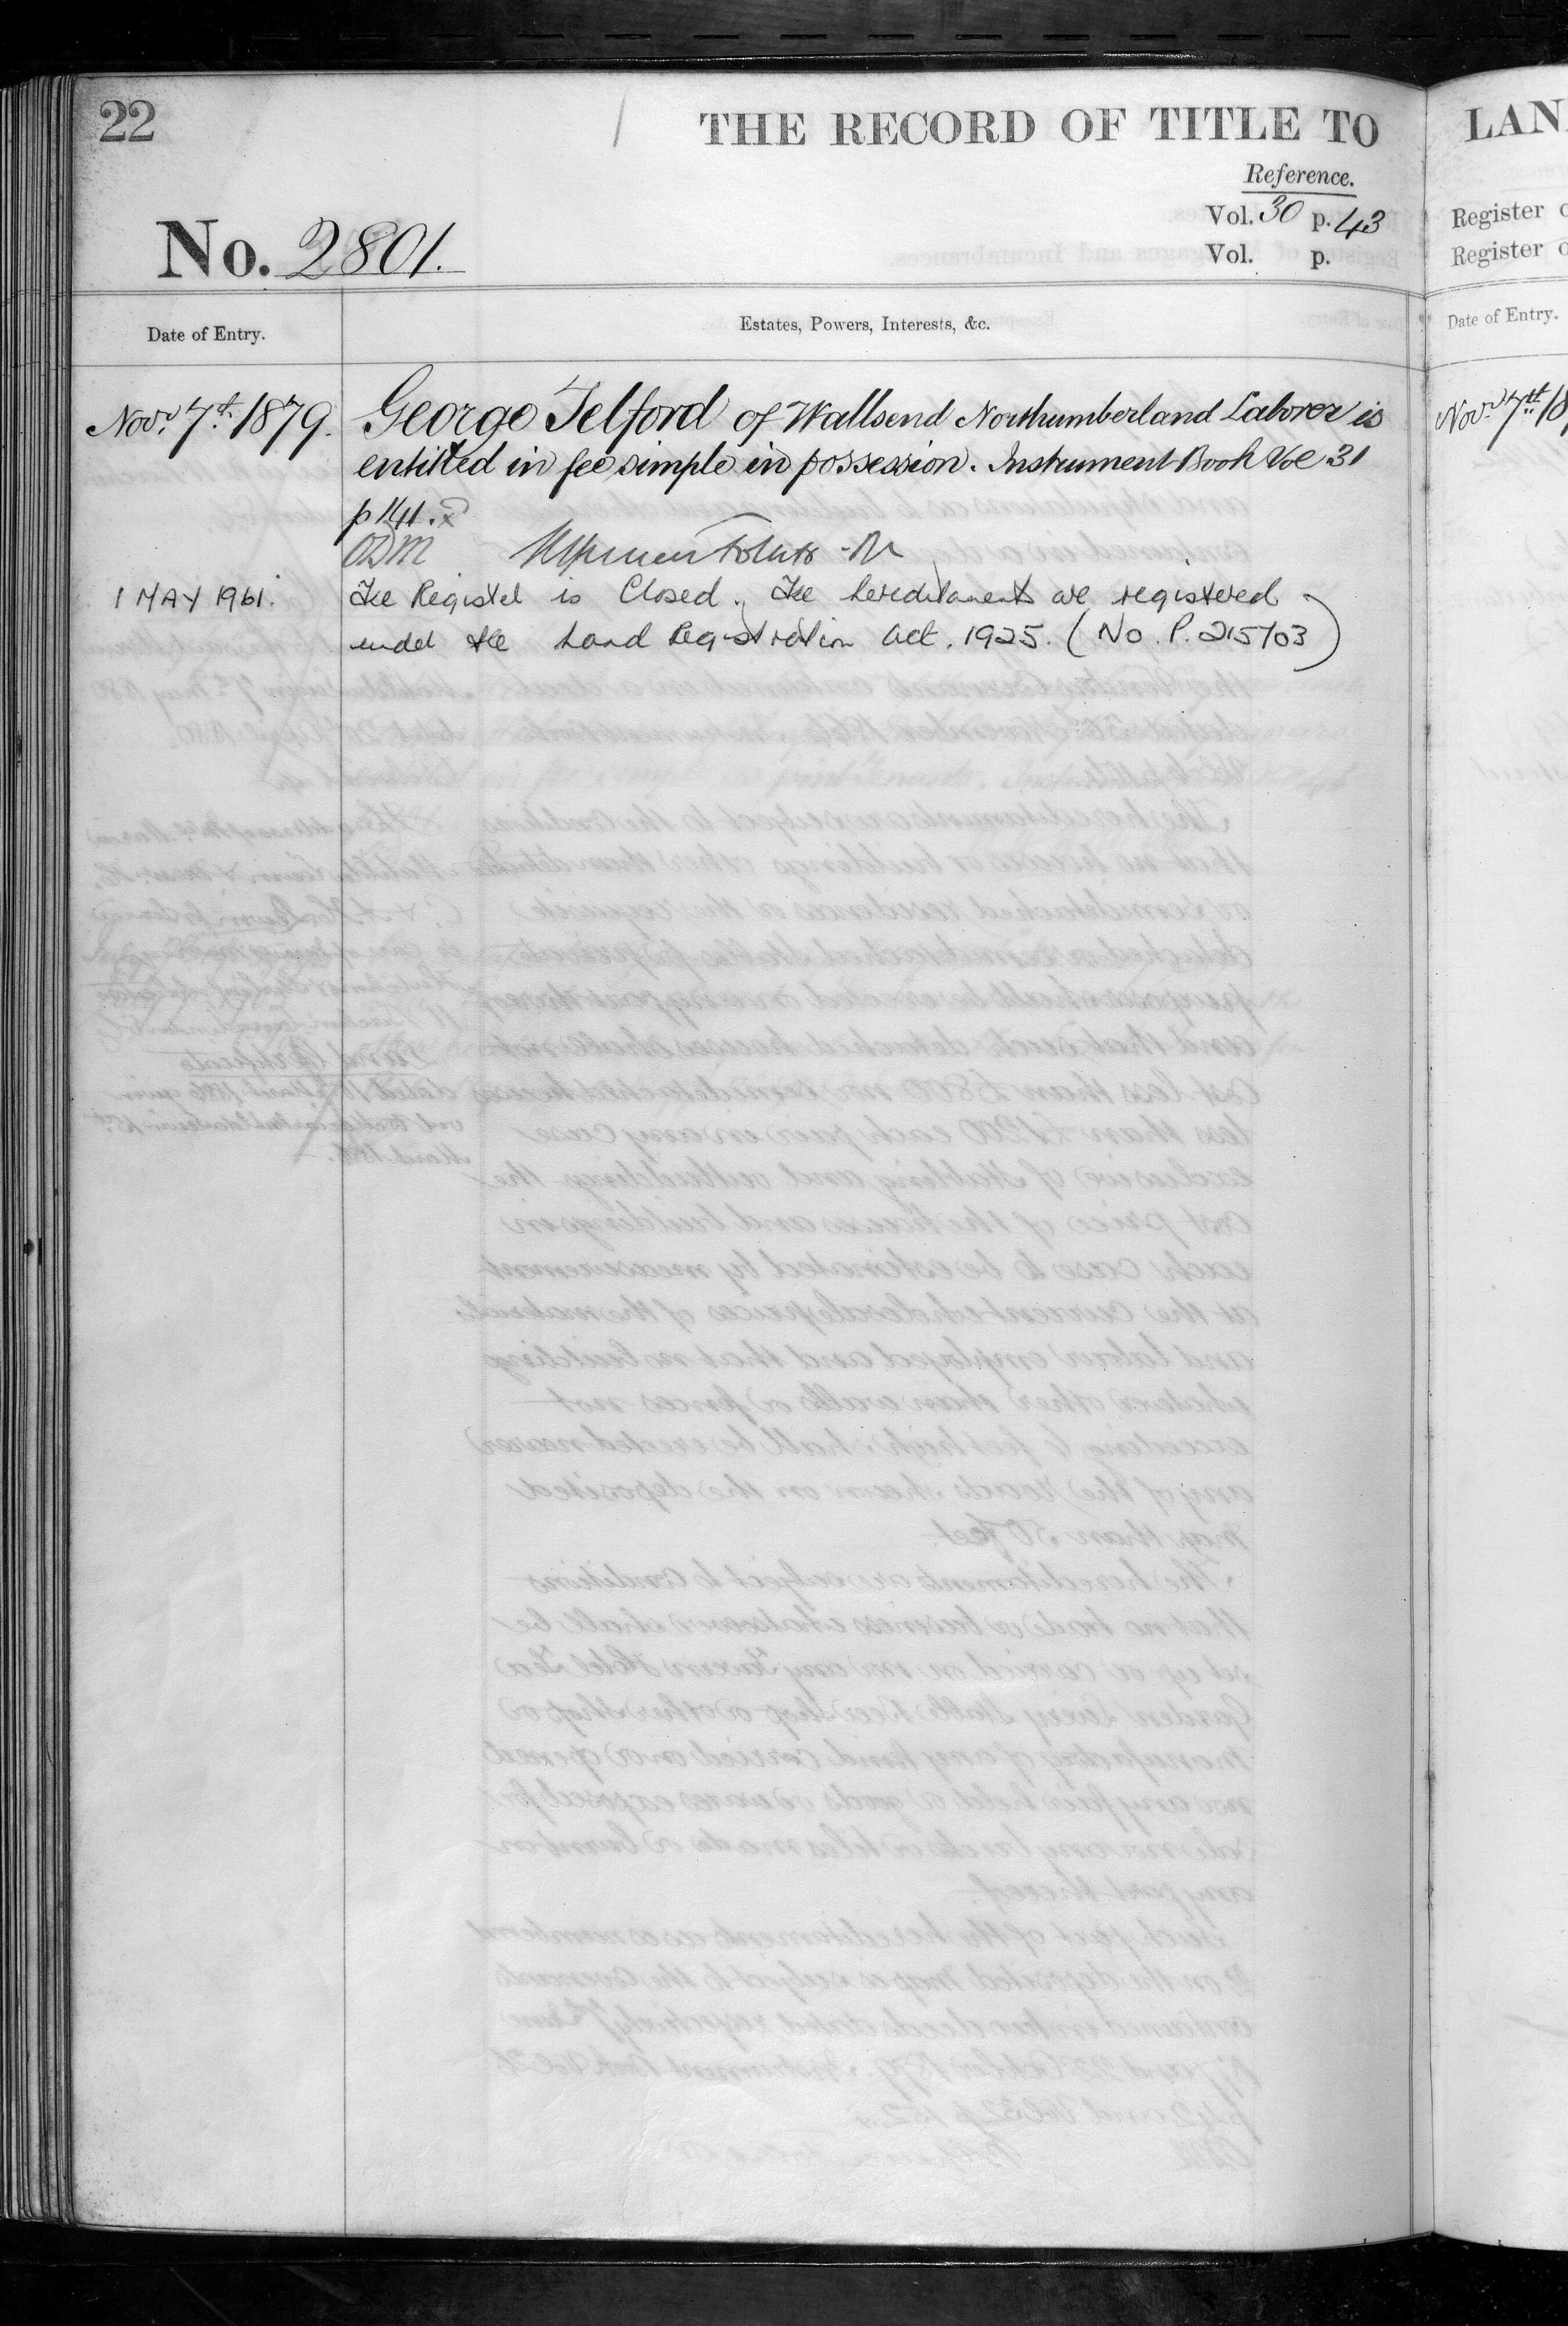 22
THE RECORD OF TITLE TO
Reference.
No. 2801.
Vol. 30 p. 43
Vol. p.
Date of Entry.
Estates, Powers, Interests, &c.
Novr. 7th. 1879.
George Telford of Wallsend Northumberland Laborer is
entitled in fee simple in possession. Instrument Book Vol 31
p 141.
1 MAY 1961.
The Register is Closed. The hereditaments are registered
under the Land Registration Act. 1925. (No. P. 215703)
LAN
Register o
Register o
Date of Entry.
Novr. 7th 18